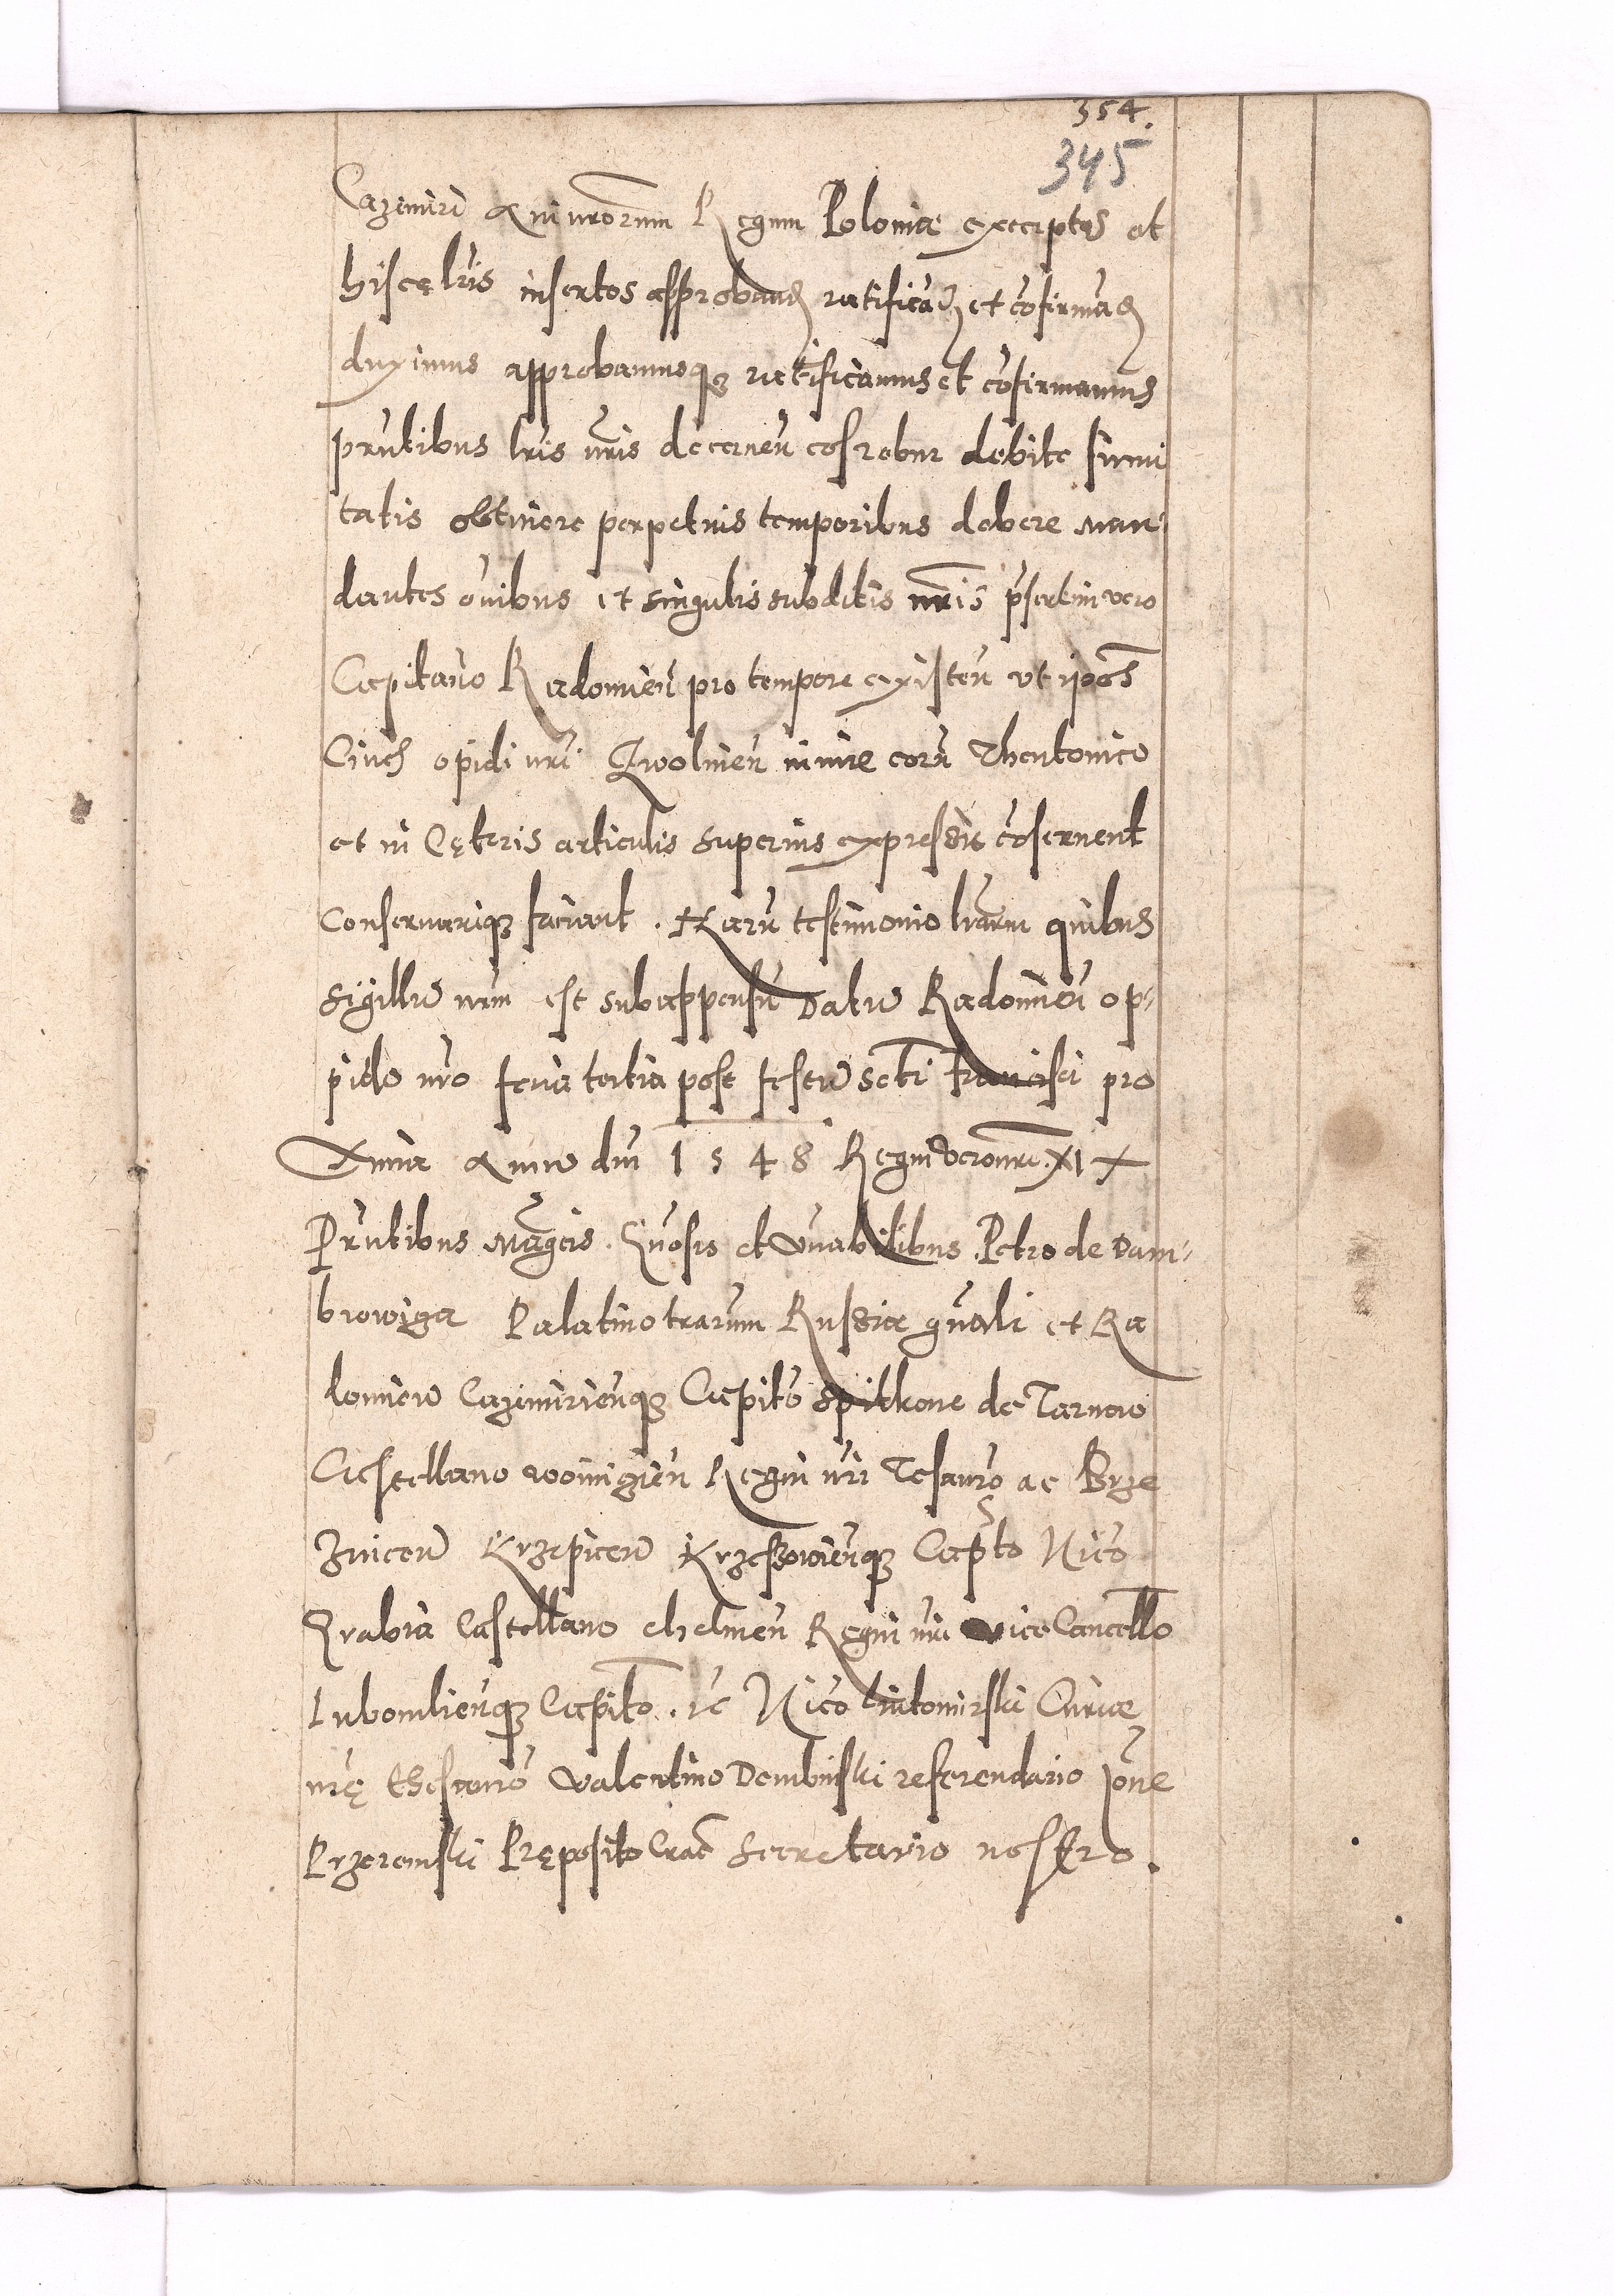 354.
345
Cazimiri Anteriorum Regum Poloniæ excerptos et
hisce lris insertos approband ratificād et cōfirmād
duximus approbamusq3 ratificamus et cōfirmamus
pntibus lris nris decernen eos robur debite firmi
tatis obtinere perpetuis temporibus debere man-
dantes oībus et singulis subditis nris psertim vero
Capitaneo Radomien pro tempore existen vt ipos
Cives opidi nri Zwolinen in iure eorū Theutonico
et in cęteris articulis superius expressis cōservent
conservariq3 faciant. Harū testimonio lrarum quibus
sigillū nrm est subappensū Datū Radomien op-
pido nro feria tertia post festū scti Francisci pro
xima Anno dni 1548 Regni vero nri XIX
Pntibus Magcis. Gnosis et Vnabilibus. Petro de Dam-
browiga Palatino terrarum Russiæ gnali et Ra
domien Cazimirienq3 Capitō Spitkone de Tarnow
Castellano woiniczien Regni nri Tesauro ac Brze
znicen Krzepicen Krzessowienq3 Capto Nicō
Grabia Castellano chelmen Regni nri Vice Cancello
Lubomlienq3 Capito. ac Nicō Lutomirski Curiæ
nrę thesauro Valentino Dembinski referendario Joñe
Przeremski Pręposito Crac Secretario nostro.